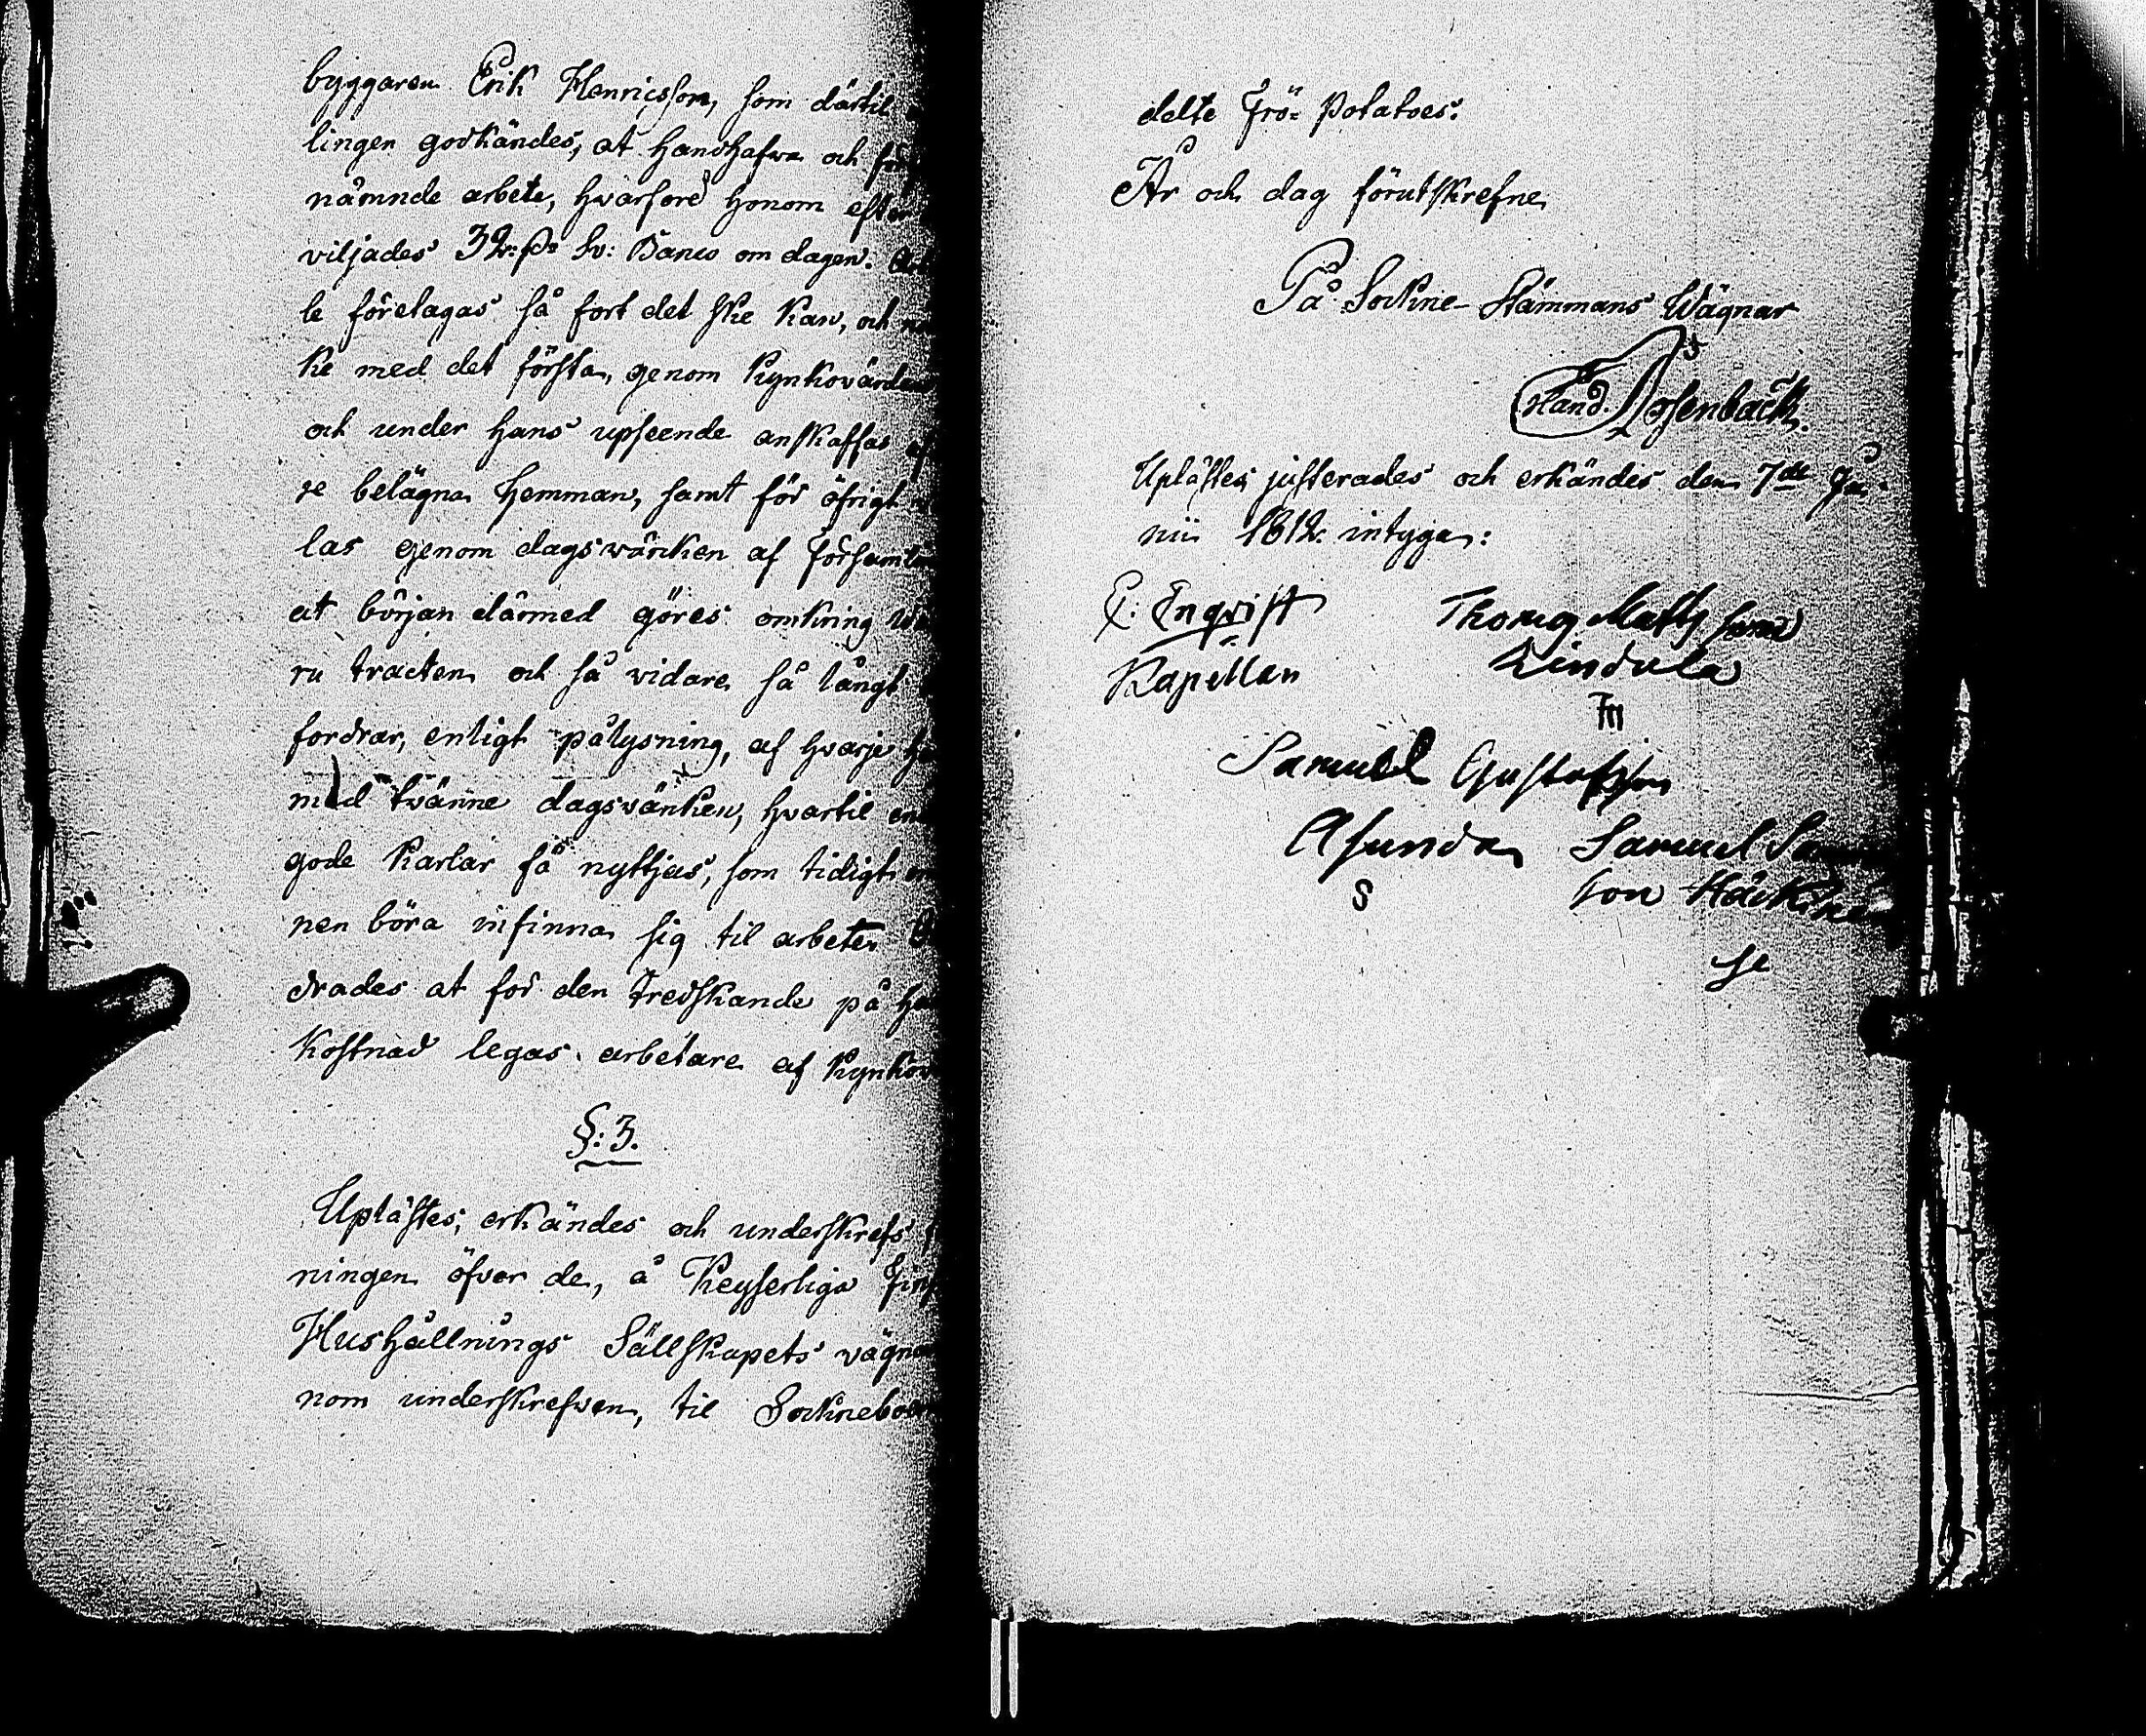 byggaren Erik Henricsson, som därtil
lingen godkändes, at handhafwa och
nämnde arbete, hvarföre honom efter
viljades 32: ss Sv: Banco om dagen.
le företagas så fort det ske kan, och
ke med det första, genom Kyrkovärden
och under hans upseende anskaffas af
se belägna Hemman, samt för öfrigt
las genom dagsvärcken af Församlin
at början därmed göres omkring
ru tracten och så vidare så långt
fordrar, enligt pålysning, af hvarje
med tvänne dagsvärken, hvartil en
gode Karlar få nyttjas, som tidigt
nen böra infinna sig til arbete.
drades at för den tredskande på
Kostnad legas arbetare af Kyrkov
§: 3.
Uplästes, erkändes och underskrefs
ningen öfver de, å Keyserliga Fin
Hushållnings Sällskapets vägna
nom underskrefwen, til Sockneboer
delte Frö-Potatoes.
År och dag förutskrefne
På Sockne-Stämmans Wägnar
And. Rosenback.
Uplästes justerades och erkändes den 7de Ju-
nii 1812. intyga:
E: Enqvist
Kapellan
Thomas Matsson
Lindula
Samuel Gustafsson
Asunda
S
Samuel Sam
son Häckine